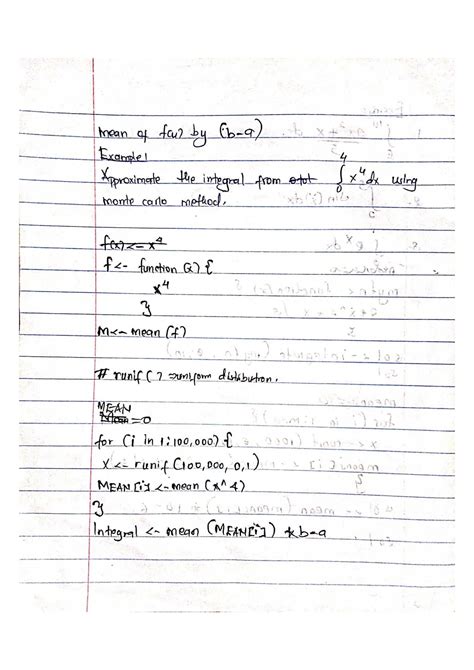 mean of f(u) by (b-a)
Example 1
Xpproximate the integral from ∫₀⁴ x⁴dx using
monte carlo method.
f(x) <- x⁴
f <- function (x) {
x⁴
}
M <- mean (f)
# runif ( ) => uniform distribution.
MEAN
=0
for (i in 1:100,000) {
X <- runif (100,000, 0,1)
MEAN [i] <- mean (x^4)
}
Integral <- mean (MEAN[i]) * b-a